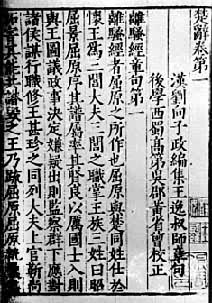 楚辭卷第一
漢劉向子政編集王逸叔師章句
後學西蜀高第吳郡黃省曾校正
離騷經章句第一
離騷經者屈原之所作也屈原與楚同姓仕於
懷王爲三閭大夫三閭之職掌王族三姓曰昭
屈景屈原序其譜屬率其賢良以厲國士入則
與王圖議政事決定嫌疑出則監察群下應對
諸侯謀行職修王甚珍之同列大夫上官靳尚
妬害其能共譖毀之王乃疏屈原屈原